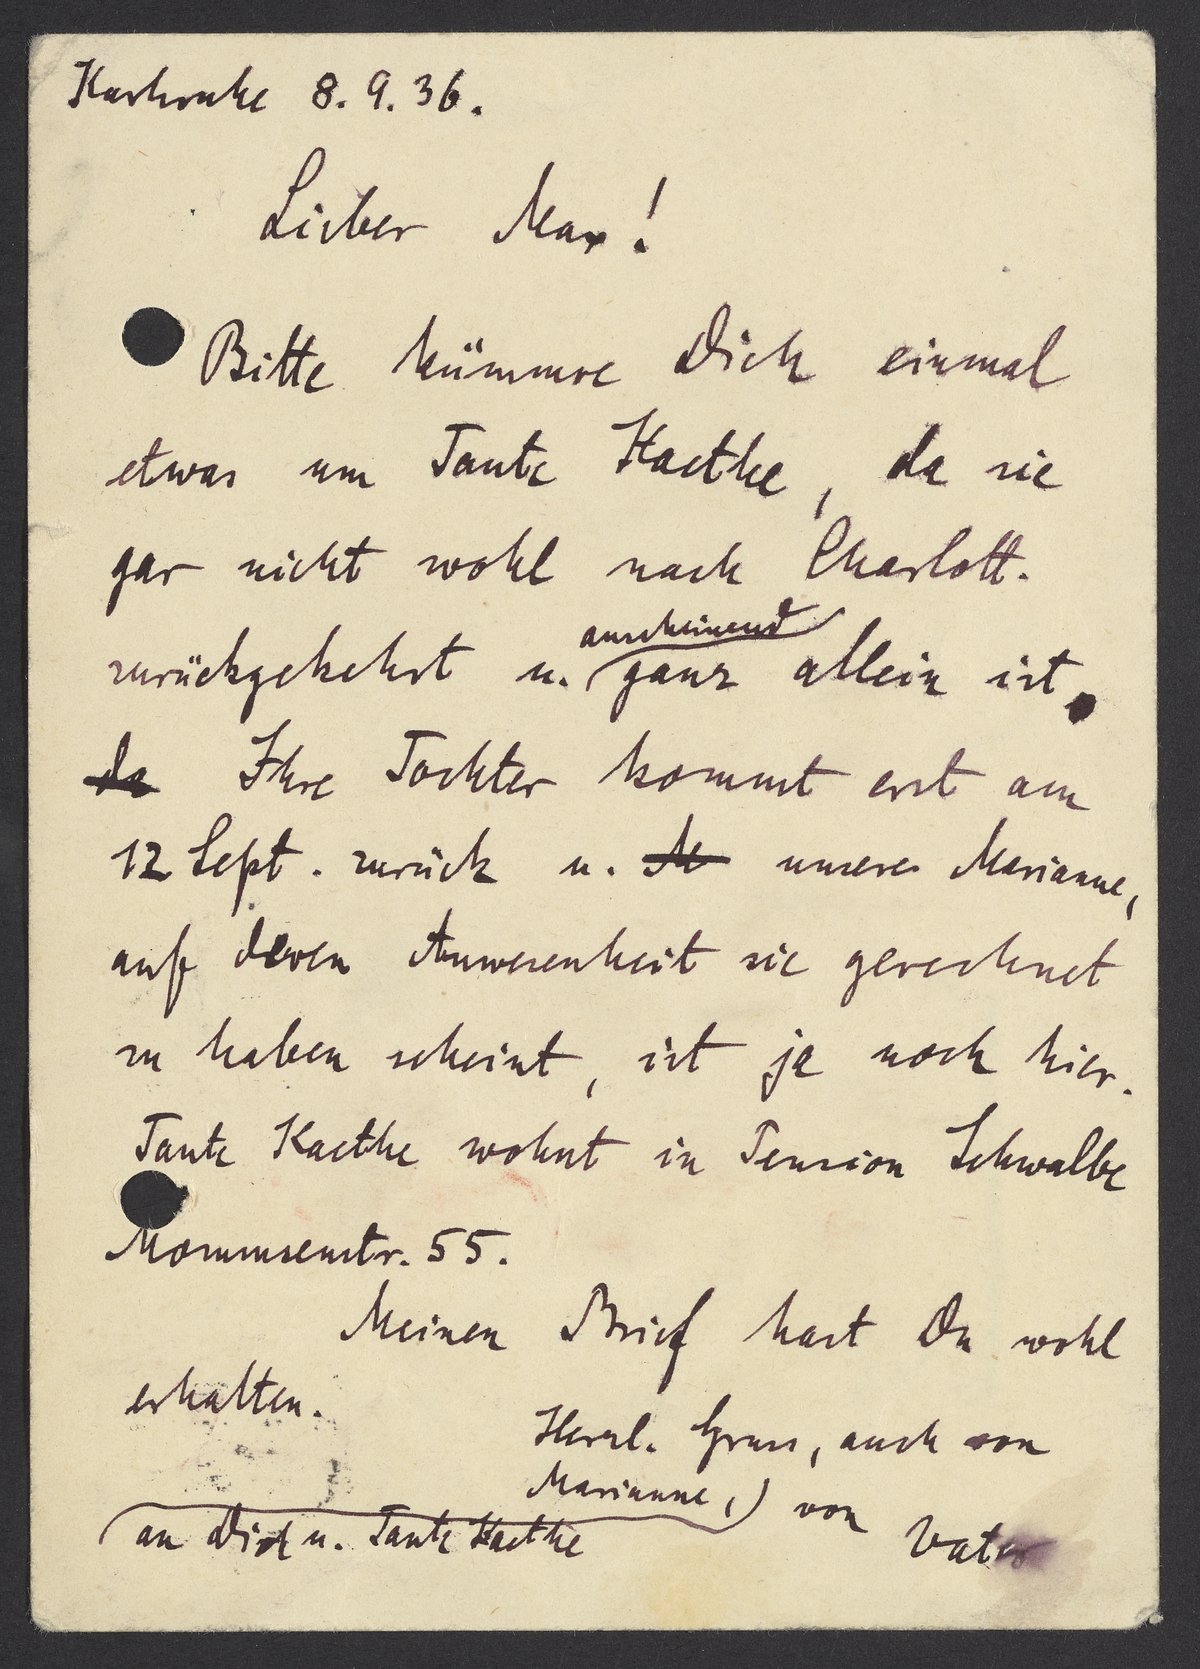 Karlsruhe 8.9.36.
Lieber Max!
Bitte kümmre Dich einmal
etwas um Tante Kaethe, da sie
gar nicht wohl nach Charlott.
anscheinend
zurückgekehrt u. ganz allein ist.
da Ihre Tochter kommt erst am
12 Sept. zurück u. M unsere Marianne,
auf deren Anwesenheit sie gerechnet
zu haben scheint, ist ja noch hier.
Tante Kaethe wohnt in Pension Schwalbe
Mommsenstr. 55.
Meinen Brief hast Du wohl
erhalten.
Herzl. Gruss, auch von
Marianne,) von Vater
an Dich u. Tante Kaethe